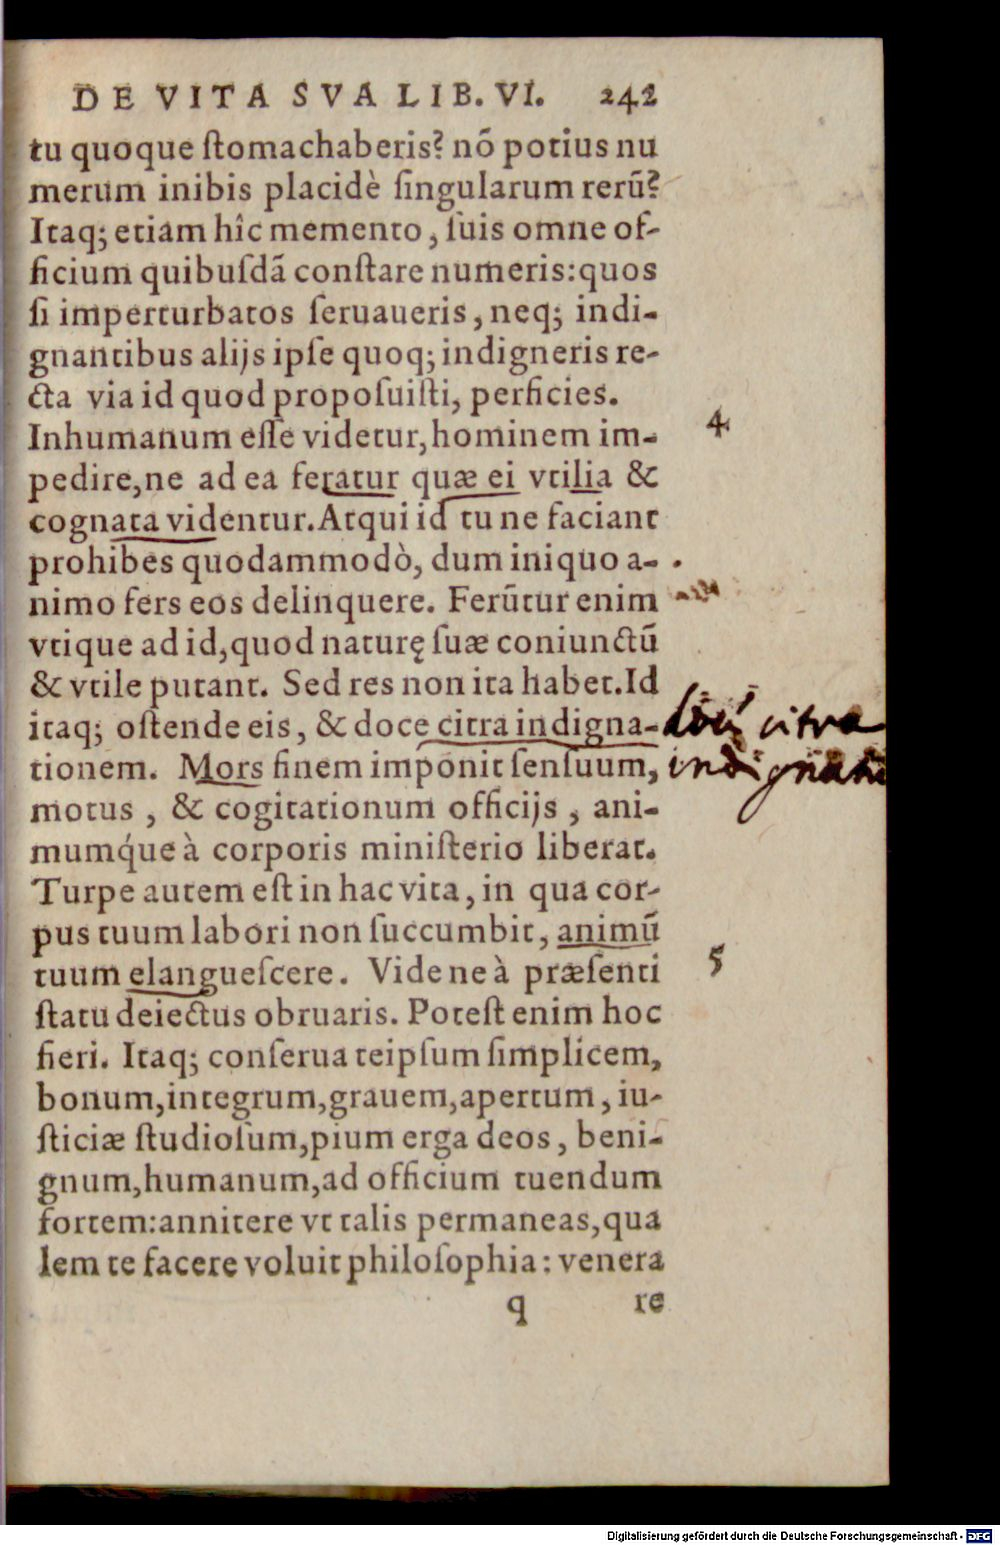 DE VITA SVA LIB. VI. 242
tu quoque ſtomachaberis? nõ potius nu
merum inibis placidè ſingularum rerũ?
Itaq; etiam hîc memento, ſuis omne of-
ficium quibuſdã conſtare numeris: quos
ſi imperturbatos ſeruaueris, neq; indi-
gnantibus alijs ipſe quoq; indigneris re-
cta via id quod propoſuiſti, perficies.
Inhumanum eſſe videtur, hominem im- 4
pedire, ne ad ea feratur quæ ei vtilia &
cognata videntur. Atqui id tu ne faciant
prohibes quodammodò, dum iniquo a-
nimo fers eos delinquere. Ferũtur enim
vtique ad id, quod naturę ſuæ coniunctũ
& vtile putant. Sed res non ita habet. Id
itaq; oſtende eis, & doce citra indigna- citra
tionem. Mors finem imponit ſenſuum,
motus, & cogitationum officijs, ani-
mumq́ue à corporis miniſterio liberat.
Turpe autem eſt in hac vita, in qua cor-
pus tuum labori non ſuccumbit, animũ
tuum elangueſcere. Vide ne à præſenti 5
ſtatu deiectus obruaris. Poteſt enim hoc
fieri. Itaq; conſerua teipſum ſimplicem,
bonum, integrum, grauem, apertum, iu-
ſticiæ ſtudioſum, pium erga deos, beni-
gnum, humanum, ad officium tuendum
fortem: annitere vt talis permaneas, qua
lem te facere voluit philoſophia: venera
q re
Digitalisierung gefördert durch die Deutsche Forschungsgemeinschaft - DFG